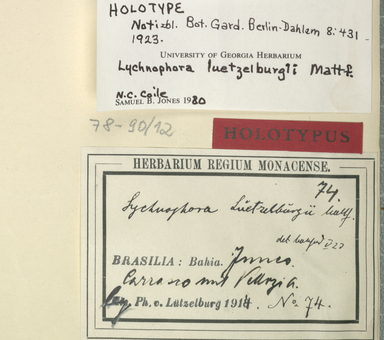 HOLOTYPE
Notizbl. Bot. Gard. Berlin-Dahlem 8: 431
1923.
UNIVERSITY OF GEORGIA HERBARIUM
Lychnophora luetzelburgii Mattf.
N.C. Coile
SAMUEL B. JONES 1980
78-90/12
HOLOTYPUS
HERBARIUM REGIUM MONACENSE.
74.
Lychnophora Lützelburgii Mattf.
det. Mattfeld
BRASILIA: Bahia. Junco.
Carrasco mit Vellozia.
leg. Ph. v. Lützelburg 1914. No 74.